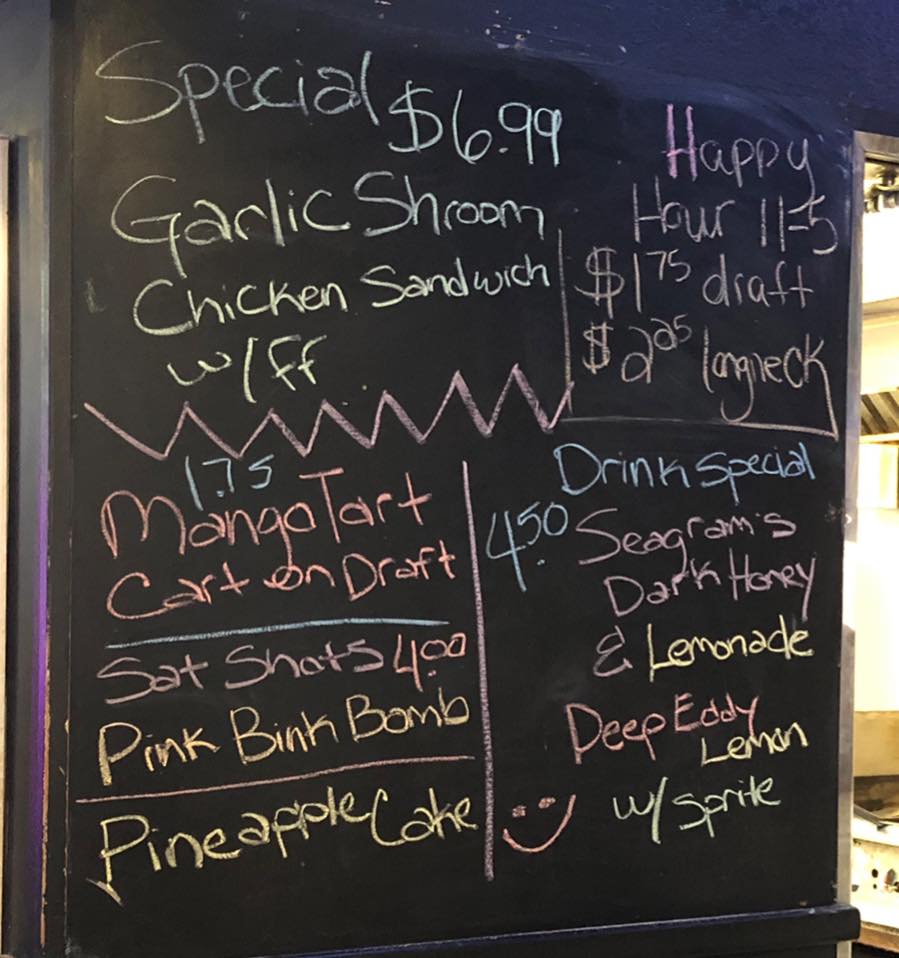 Special $6.99
Garlic Shroom
Chicken Sandwich
w/ff
Happy
Hour 11-5
$1.75 draft
$2.25 longneck
1.75
Mango Tart
Cart on Draft
Sat Shots 4.00
Pink Bink Bomb
Pineapple Cake
Drink Special
4.50 Seagram's
Dark Honey
& Lemonade
Deep Eddy
Lemon
w/ Sprite